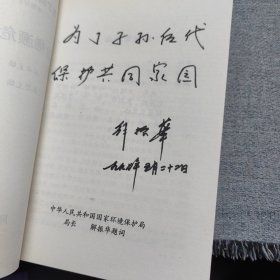 为了子孙后代
保护共同家园
解振华
一九九五年五月二十二日
中华人民共和国国家环境保护局
局长 解振华题词